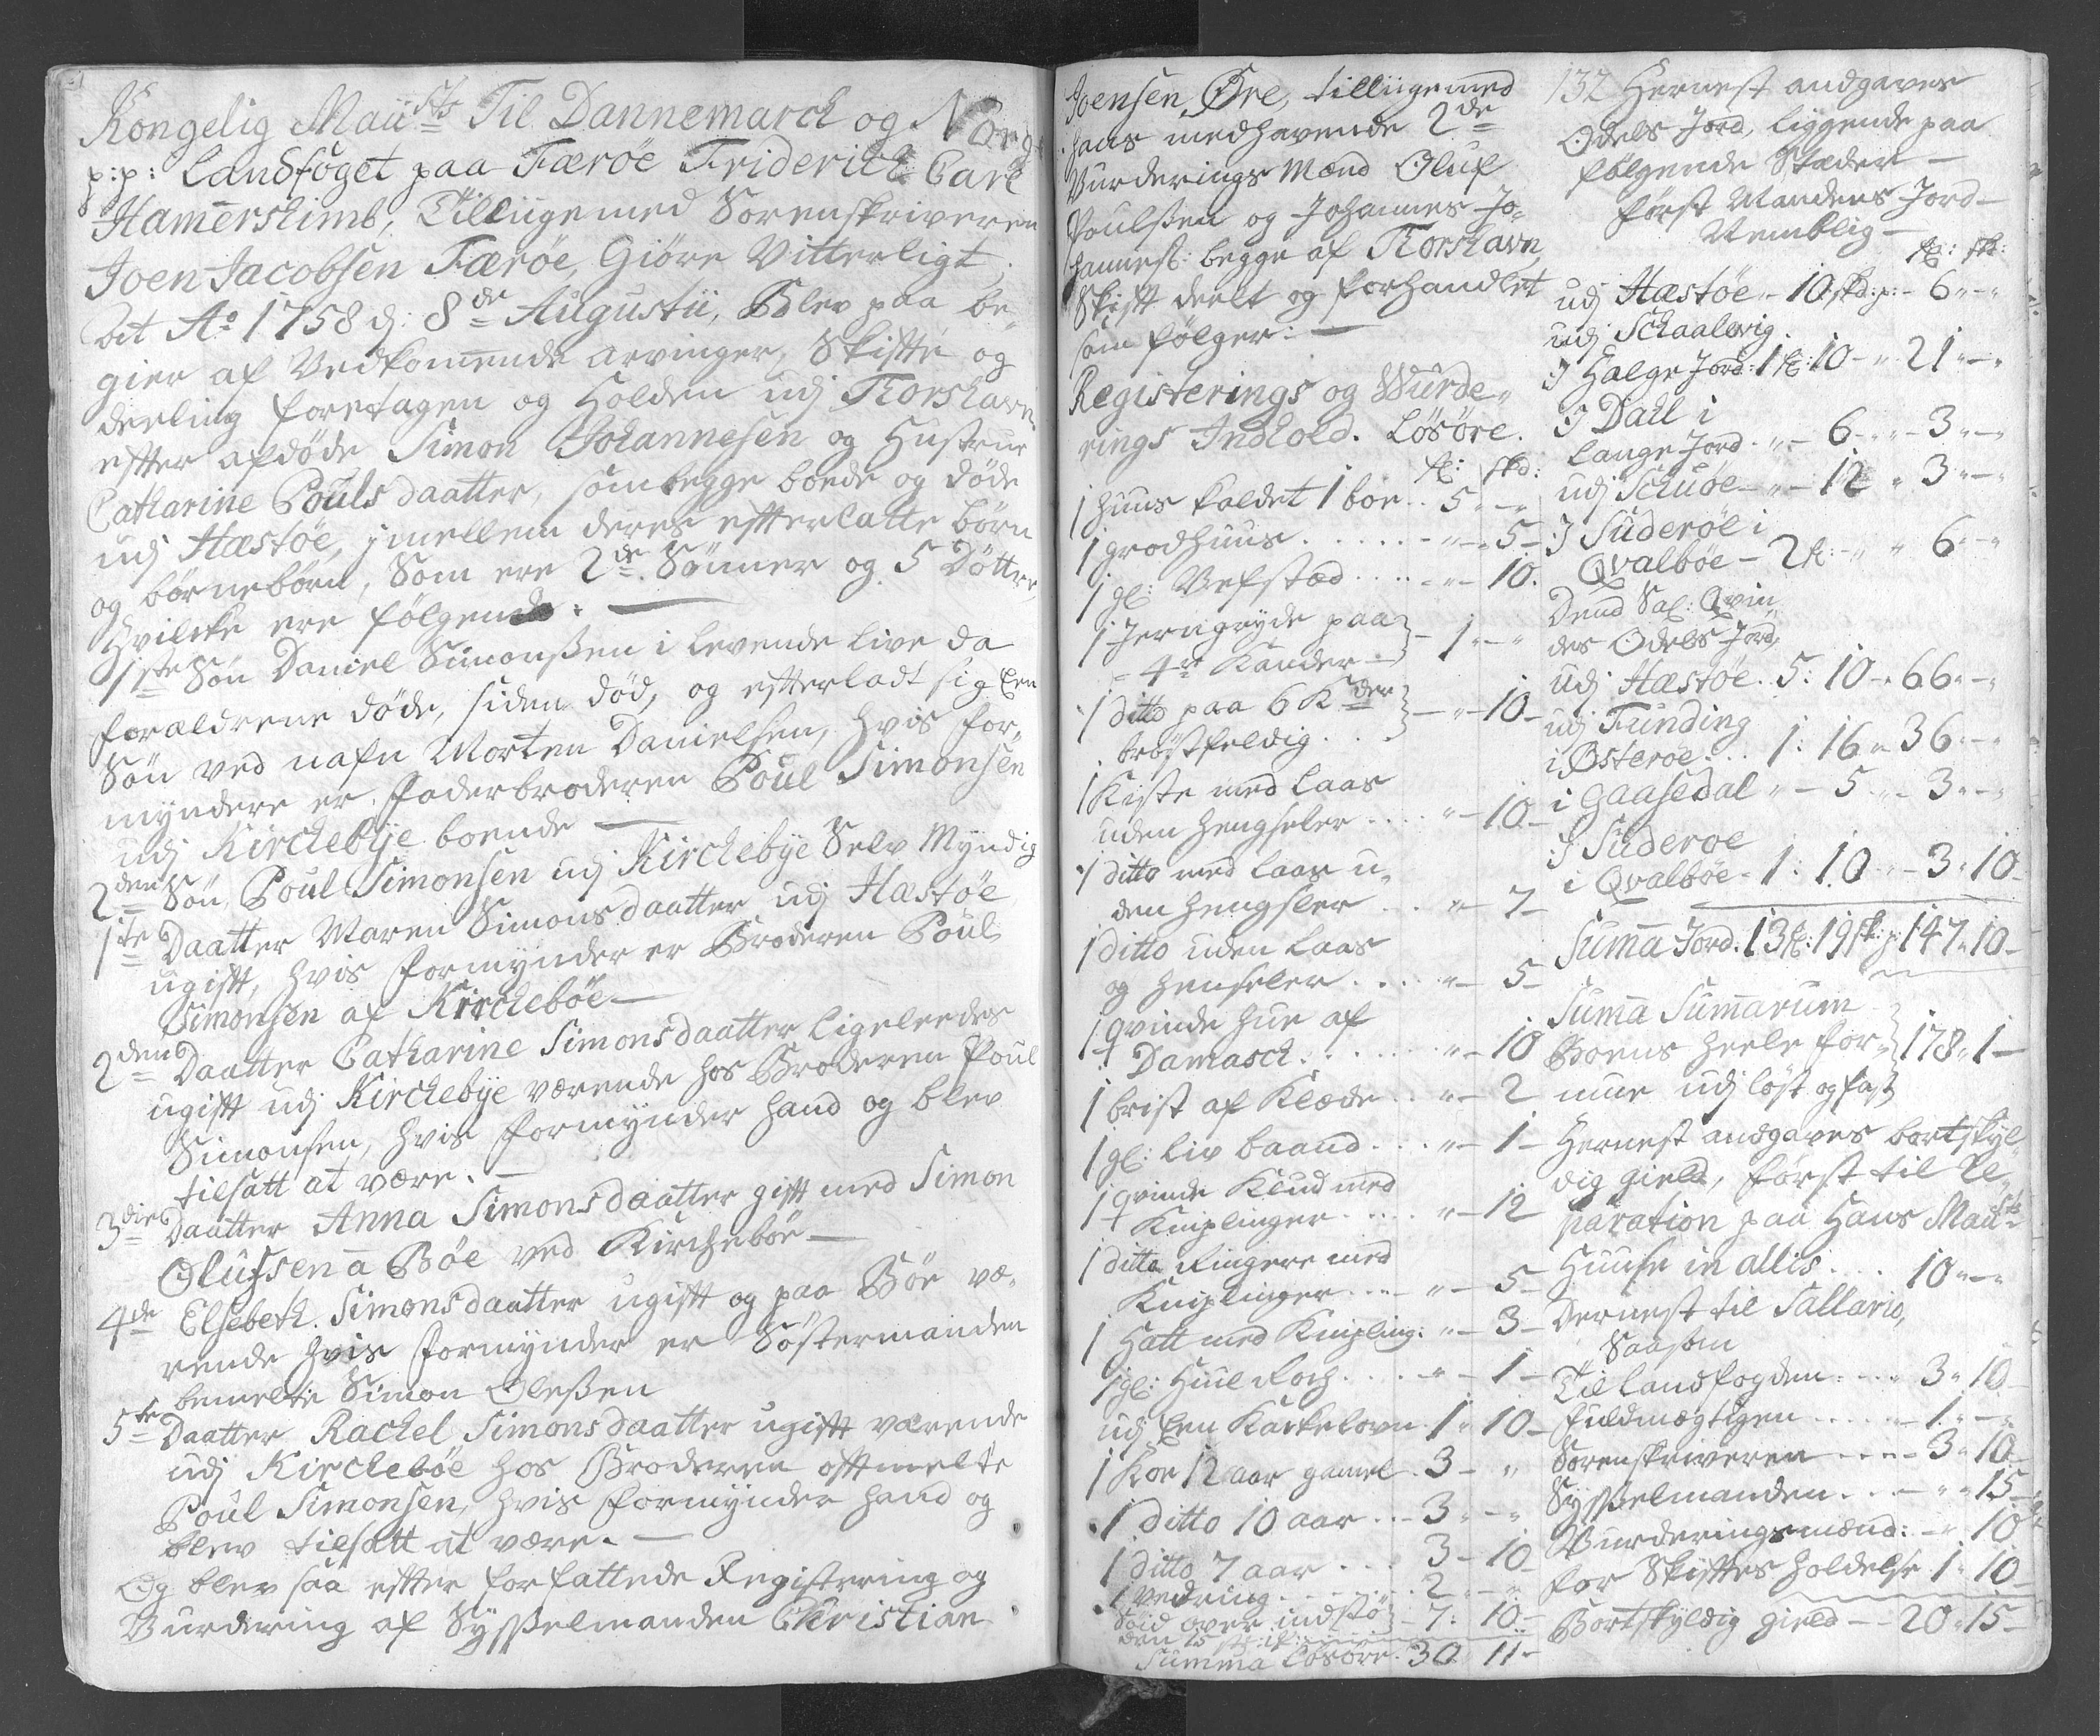 Kongelig Maiists Til Dannemarck og Norge
p:p: Landfoget paa Færöe Friderich Carl
Hamerskimb, Tilliigemed Sorenskriveren
Joen Jacobsen Færöe, Giöre Vitterligt,
at Ao 1758 d: 8de Augustii, Blev paa be„
gier af Vedkomende Arvinger, Skifte og
deeling foretagen og Holden udj Thorshavn
effter afdöde Simon Johannesen og Hustrue
Catharine Pouls daatter, som begge boede og döde
udj Hæstöe, jmellem deres effterlatte börn
og börnebörn, Som ere 2de Sönner og 5 Döttre
Hvilcke ere fölgende.
1ste Sön Daniel Simonßen i levende live da
foraeldrene döde, siden död, og effterladt sig Een
Sön ved nafn Morten Danielsen, hvis for„
myndere er Faderbroderen Poul Simonsen
udj Kirckebye boende
2den Sön, Poul Simonsen udj Kirckebye Selv Myndig
1te Daatter Maren Simons daatter udj Hæstöe
ugift, hvis formynder er Broderen Poul
Simonsen af Kirckeböe
2den Daatter Catharine Simonsdaatter ligeleedes
ugift udj Kirckebye værende hos Broderen Poul
Simonsen, hvis formynder hand og blev
tilsatt at være.
3die Daatter Anna Simonsdaatter gift med Simon
Olufsen a Böe ved Kirckeböe
4de Elsebeth. Simonsdaatter ugift og paa Böe væ„
rende hvis formynder er Söstermanden
bemelte Simon Oleßen
5te Daatter Rachel Simonsdaatter ugift værende
udj Kirckeböe hos Broderen offtmelte
Poul Simonsen, hvis formynder hand og
blev tilsatt at være.
Og blev saa effter forfattede Registering og
Vurdering af Sysselmanden Christian
Joensen Öre, tilliigemed
hans medhavende 2de
Vurderings Mænd Oluf
Poulsßen og Johannes Jo„
hannesß: begge af Thorshavn
Skift deelt og forhandlet
som fölger:
Registerings og Wurde„
rings Indhold. Lösöre.
fl: skd:
1 huus kaldet 1 boe .. 5 „ – „
1 grodhuus ...... – „ – 5 –
1 gl: Vefstæd .... – „ – 10.
1 Jerngryde paa
4re Kander – 1 – „
1 ditto paa 6 Kder
bröstfeldig . . – „ – 10 –
1 Kiste med laas
uden hengseler .... „ – 10 –
1 ditto med laas u„
den hengsler .. „ – 7 –
1 ditto uden laas
og henseler .... „ – 5 –
1 qvinde hue af
Damasck ...... „ – 10
1 brist af Klæde .. „ – 2
1 gl: liv baand ... „ – 1 –
1 qvinde Klud med
Kniplinger .... „ – 12
1 ditto Ringere med
Kniplinger .... „ – 5 –
1 Hatt med Knipling: „ – 3 –
1 gl: Huul Roch .... „ – 1 –
udj Een Kackelovn 1 „ 10 –
1 Koe 12 aar gamel . 3 – „
1 ditto 10 aar .. 3 – „
1 ditto 7 aar ... 3 – 10
1 vedring ...... 2 – „
Söid over indstö – 7: 10 –
den 15
Summa Lösöre . 30 11 –
132 Hernest andgaves
Odels Jord, liggende paa
fölgende Stæder –
först Mandens Jord –
Nemblig –
fl: skd:
udj Hæstöe – 10 skd: p: – 6 „ – „
udj Schaalevig
J Halge Jord: 1 fl: 10 – „ 21 „ – „
J Dall i
lange Jord. „ – 6 – „ – 3 „ – „
udj Schuöe – „ – 12 „ 3 „ – „
J Suderöe i
Qvalböe – 2 fl: – „ „ 6 – „
Dend Sal: Qvin„
des Odels Jord,
udj Hæstöe. 5: 10 – 66 „ – „
udj Funding
i Österöe ... 1: 16 „ 36 „ – „
i Gaasedal „ – 5 „ – 3 „ – „
J Suderoe
i Qvalböe – 1: 10 – 3 „ 10 –
Suma Jord. 13 fl: 19 sk: p: 147 „ 10 –
Suma Sumarum
Boens heele for„ 178 „ 1 –
mue udj löst og fast
Hernest andgaves bortskyl„
dig gield, först til Re„
paration paa Hans Maiits
Huuse in allis ... 10 „ – „
Dernest til Sallario,
Saasom
Til landfogden .... 3 „ 10 –
fuldmægtigen .... – 1 „ – „
Sorenskriveren .... – 3 „ 10 –
Sysselmanden ... – „ 15 –
Vurderingsmænd: – „ 10
for Skifttes holdelse 1 „ 10 –
Bortskyldig gield – 20 „ 15 –